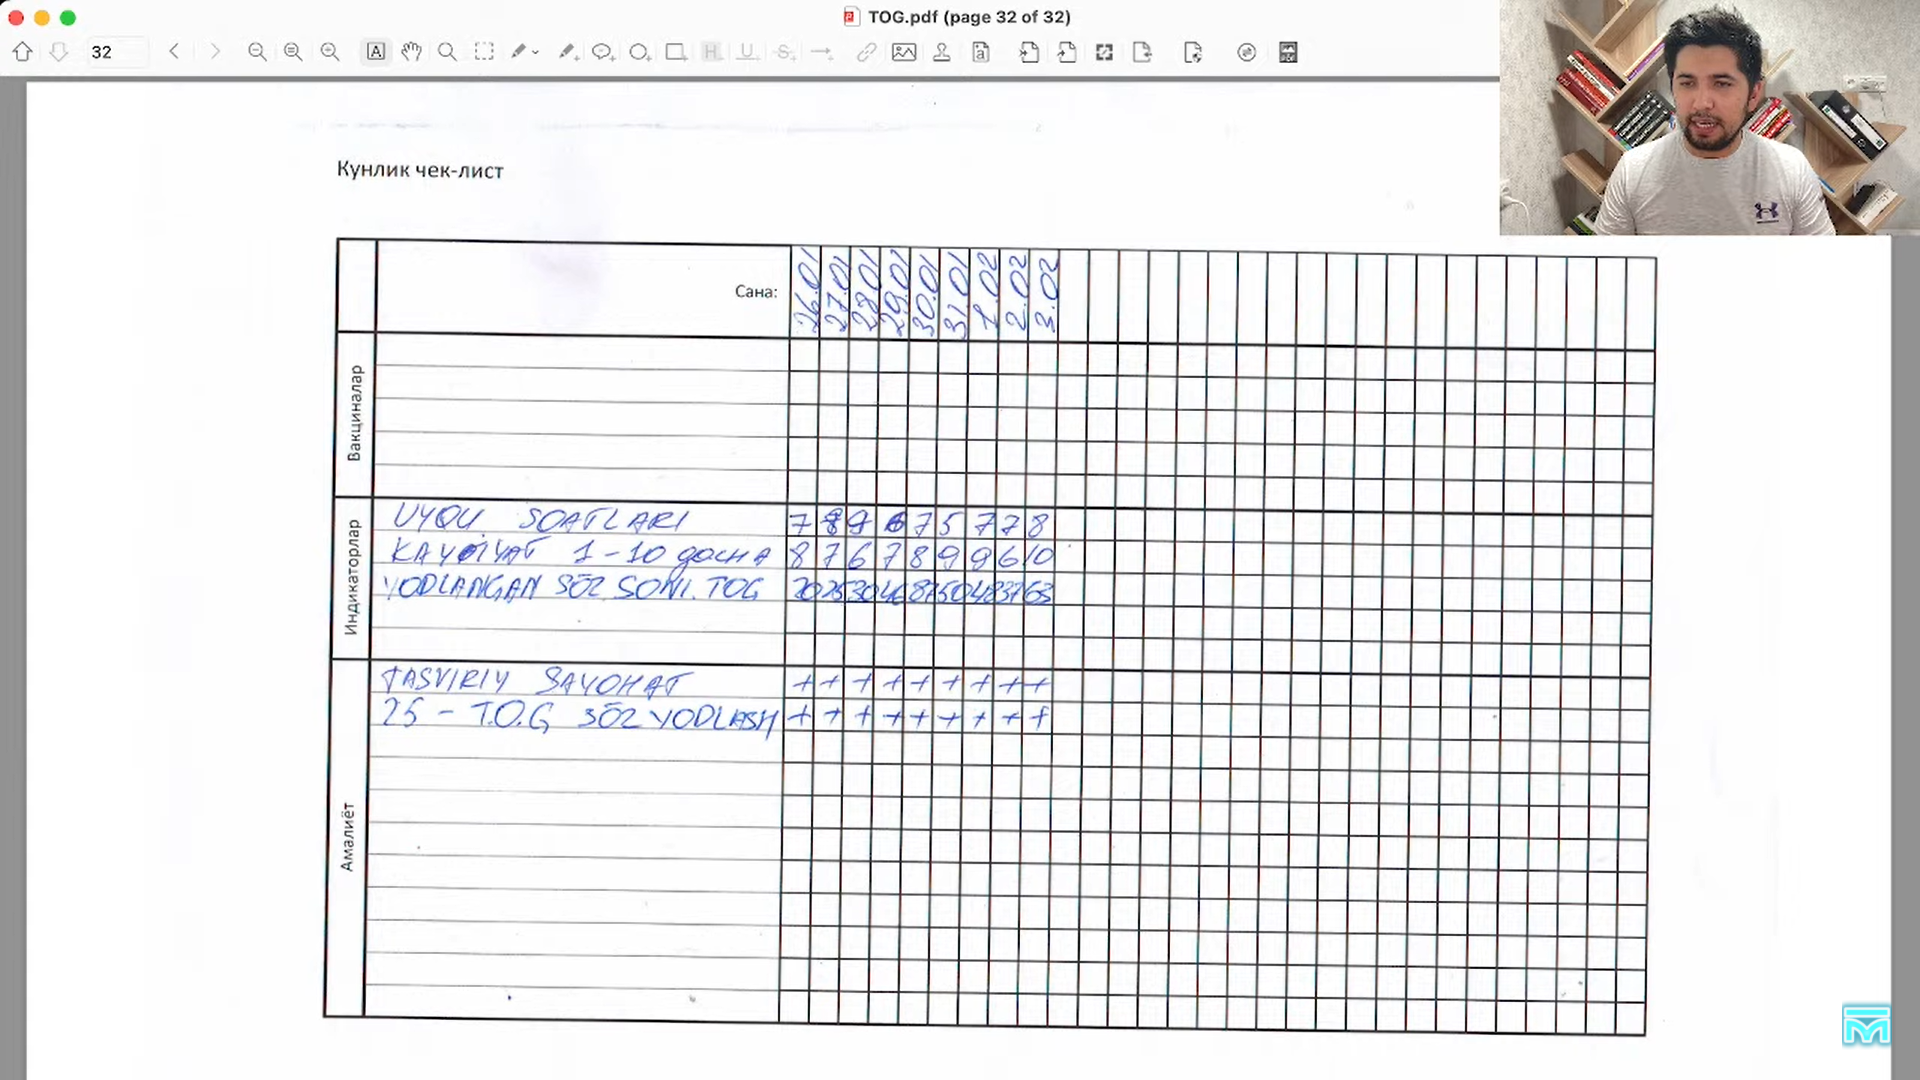 TOG.pdf (page 32 of 32)
32
Кунлик чек-лист
Сана: 26.01 27.01 28.01 29.01 30.01 31.01 1.02 2.02 3.02
Вакциналар
Индикаторлар
UYQU SOATLARI 7 8 9 6 7 5 7 7 8
KAYFIYAT 1-10 gacha 8 7 6 7 8 9 9 6 10
YODLANGAN SŌZ SONI. TOG 20 25 30 46 87 50 48 37 63
Амалиёт
TASVIRIY SAYOHAT + + + + + + + + +
25 - T.O.G SŌZ YODLASH + + + + + + + + +